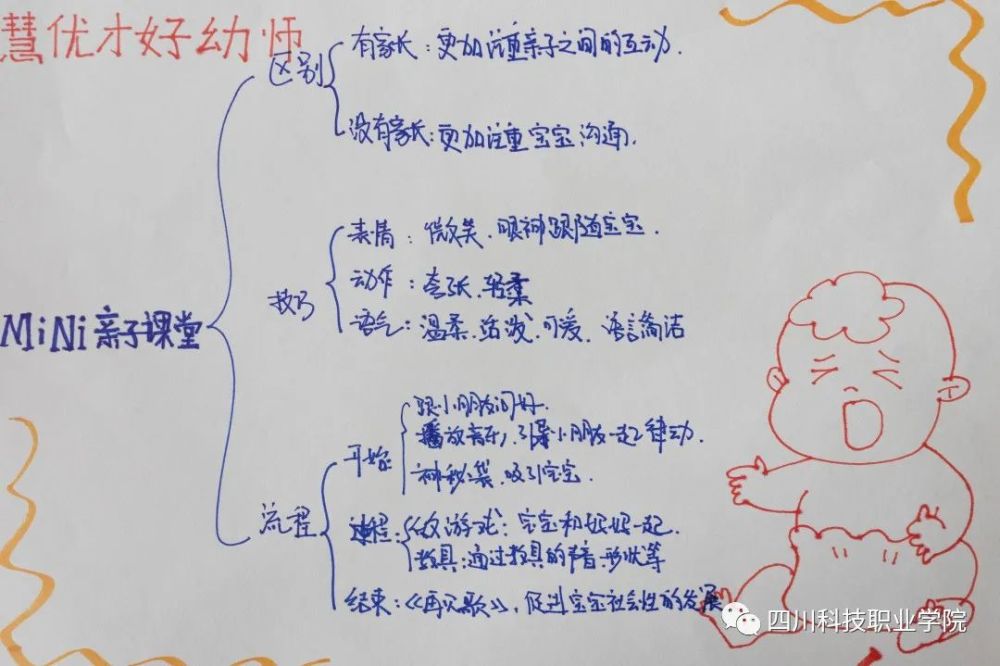 慧优才好幼师
MiNi亲子课堂
区别
有家长:更加注重亲子之间的互动.
没有家长:更加注重宝宝沟通.
技巧
表情:微笑、眼神跟随宝宝.
动作:夸张、轻柔
语气:温柔、活泼、可爱、语言简洁
流程
开始
跟小朋友问好.
播放音乐,引导小朋友一起律动.
神秘袋,吸引宝宝.
过程:
游戏:宝宝和妈妈一起.
教具:通过教具的声音、形状等
结束:《再见歌》,促进宝宝社会性的发展
四川科技职业学院